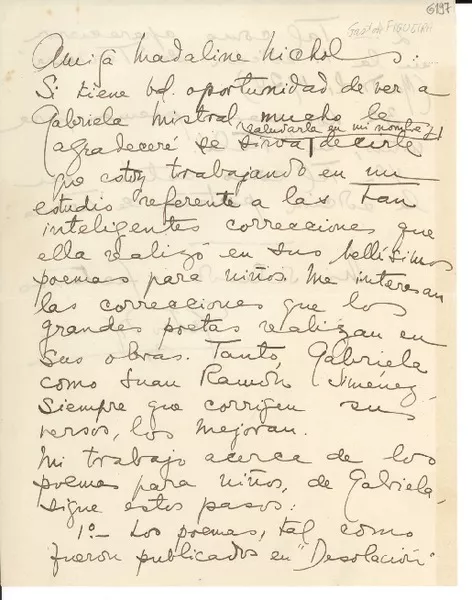 6197
Gastón FIGUEIRA
Amiga Madaline Nichols:
Si tiene Vd. oportunidad de ver a
Gabriela Mistral, mucho le
saludarla en mi nombre y
agradeceré se sirva decirle
que estoy trabajando en un
estudio referente a las tan
inteligentes correcciones que
ella realizó en sus bellísimos
poemas para niños. Me interesan
las correcciones que los
grandes poetas realizan en
sus obras. Tanto Gabriela
como Juan Ramón Jiménez,
siempre que corrigen sus
versos, los mejoran.
Mi trabajo acerca de los
poemas para niños, de Gabriela,
sigue estos pasos:
1º – Los poemas, tal como
fueron publicados en "Desolación"